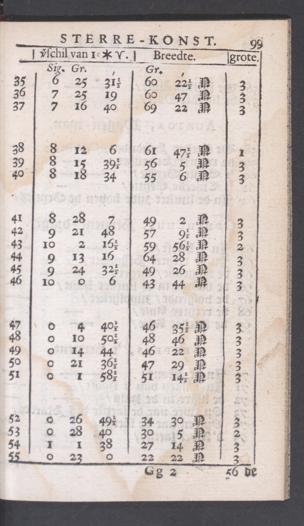 STERRE-KONST. 99
vschil van 1 * ♈. Breedte. grote.
Sig. Gr. , Gr. ,
35 6 25 31½ 60 22½ N 3
36 7 25 19 60 47 N 3
37 7 16 40 69 22 N 3
38 8 12 6 61 47½ N 1
39 8 15 39½ 56 5 N 3
40 8 18 34 55 6 N 3
41 8 28 7 49 2 N 3
42 9 21 48 57 9½ N 3
43 10 2 16½ 59 56½ N 2
44 9 13 16 64 28 N 3
45 9 24 32½ 49 26 N 3
46 10 0 6 43 44 N 3
47 0 4 40½ 46 35½ N 3
48 0 10 50½ 48 46 N 3
49 0 14 44 46 22 N 3
50 0 21 36½ 47 29 N 3
51 0 1 58½ 51 14½ N 3
52 0 26 49½ 34 30 N 3
53 0 28 40 30 5 N 2
54 1 1 38 27 14 N 3
55 0 23 0 22 22 N 3
Gg 2 56 de